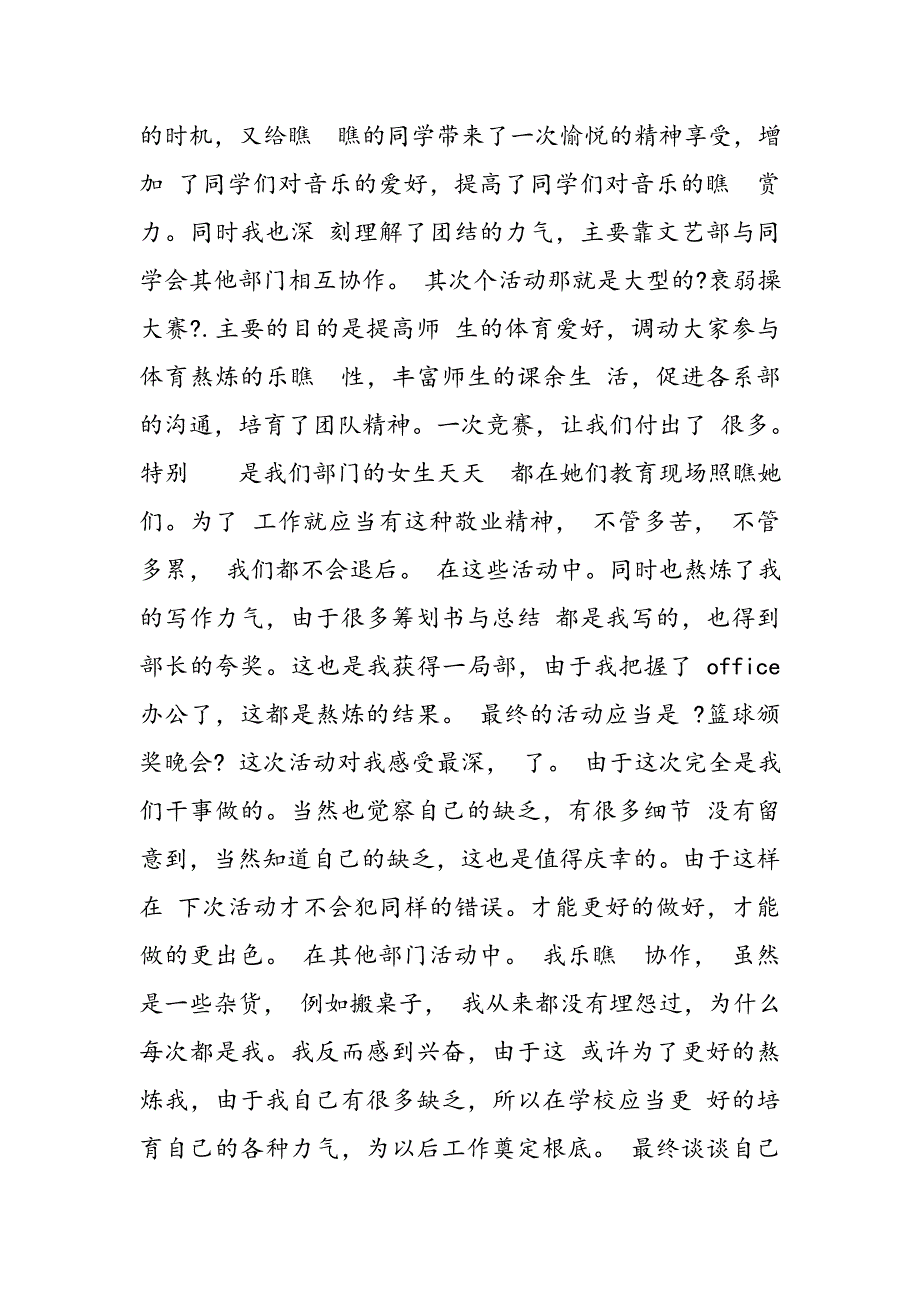 的时机，又给瞧　瞧的同学带来了一次愉悦的精神享受，增
加 了同学们对音乐的爱好，提高了同学们对音乐的瞧　赏
力。同时我也深 刻理解了团结的力气，主要靠文艺部与同
学会其他部门相互协作。 其次个活动那就是大型的?衰弱操
大赛?.主要的目的是提高师 生的体育爱好，调动大家参与
体育熬炼的乐瞧　性，丰富师生的课余生 活，促进各系部
的沟通，培育了团队精神。一次竞赛，让我们付出了 很多。
特别　 是我们部门的女生天天　都在她们教育现场照瞧她
们。为了 工作就应当有这种敬业精神， 不管多苦， 不管
多累， 我们都不会退后。 在这些活动中。同时也熬炼了我
的写作力气，由于很多筹划书与总结 都是我写的，也得到
部长的夸奖。这也是我获得一局部，由于我把握了 office
办公了，这都是熬炼的结果。 最终的活动应当是 ?篮球颁
奖晚会? 这次活动对我感受最深， 了。 由于这次完全是我
们干事做的。当然也觉察自己的缺乏，有很多细节 没有留
意到，当然知道自己的缺乏，这也是值得庆幸的。由于这样
在 下次活动才不会犯同样的错误。才能更好的做好，才能
做的更出色。 在其他部门活动中。 我乐瞧　协作， 虽然
是一些杂货， 例如搬桌子， 我从来都没有埋怨过，为什么
每次都是我。我反而感到兴奋，由于这 或许为了更好的熬
炼我，由于我自己有很多缺乏，所以在学校应当更 好的培
育自己的各种力气，为以后工作奠定根底。 最终谈谈自己